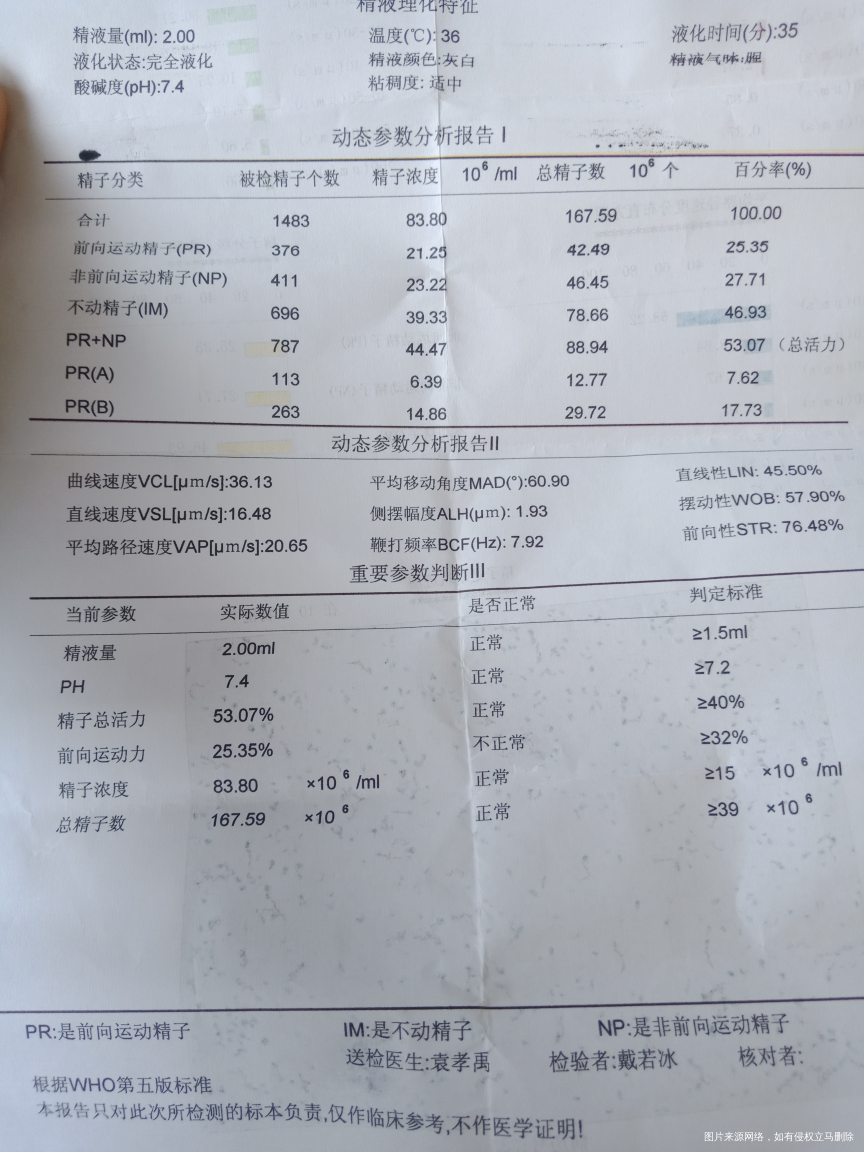 精液理化特征
精液量(ml): 2.00 温度(℃): 36 液化时间(分):35
液化状态:完全液化 精液颜色:灰白 精液气味:腥
酸碱度(pH):7.4 粘稠度: 适中
动态参数分析报告 I
精子分类 被检精子个数 精子浓度 10⁶ /ml 总精子数 10⁶ 个 百分率(%)
合计 1483 83.80 167.59 100.00
前向运动精子(PR) 376 21.25 42.49 25.35
非前向运动精子(NP) 411 23.22 46.45 27.71
不动精子(IM) 696 39.33 78.66 46.93
PR+NP 787 44.47 88.94 53.07 (总活力)
PR(A) 113 6.39 12.77 7.62
PR(B) 263 14.86 29.72 17.73
动态参数分析报告II
曲线速度VCL[μm/s]:36.13 平均移动角度MAD(°):60.90 直线性LIN: 45.50%
直线速度VSL[μm/s]:16.48 侧摆幅度ALH(μm): 1.93 摆动性WOB: 57.90%
平均路径速度VAP[μm/s]:20.65 鞭打频率BCF(Hz): 7.92 前向性STR: 76.48%
重要参数判断III
当前参数 实际数值 是否正常 判定标准
精液量 2.00ml 正常 ≥1.5ml
PH 7.4 正常 ≥7.2
精子总活力 53.07% 正常 ≥40%
前向运动力 25.35% 不正常 ≥32%
精子浓度 83.80 ×10⁶ /ml 正常 ≥15 ×10⁶ /ml
总精子数 167.59 ×10⁶ 正常 ≥39 ×10⁶
PR:是前向运动精子 IM:是不动精子 NP:是非前向运动精子
送检医生:袁孝禹 检验者:戴若冰 核对者:
根据WHO第五版标准
本报告只对此次所检测的标本负责,仅作临床参考,不作医学证明!
图片来源网络，如有侵权立马删除